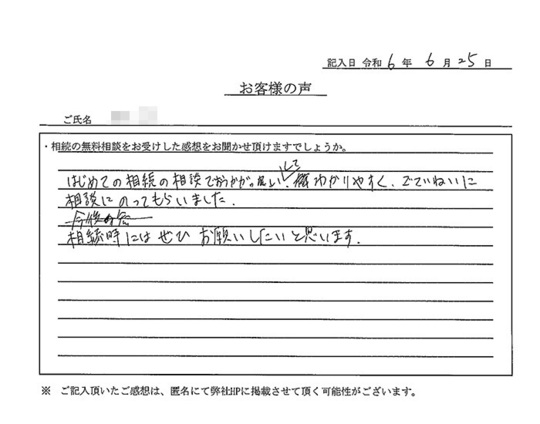 記入日 令和 6 年 6 月 25 日
お客様の声
ご氏名
・相続の無料相談をお受けした感想をお聞かせ頂けますでしょうか。
はじめての相続の相談でおうかがい して わかりやすく、ていねいに
相談にのってもらいました。
今後の
相続時にはぜひ お願いしたいと思います。
※ ご記入頂いたご感想は、匿名にて弊社HPに掲載させて頂く可能性がございます。